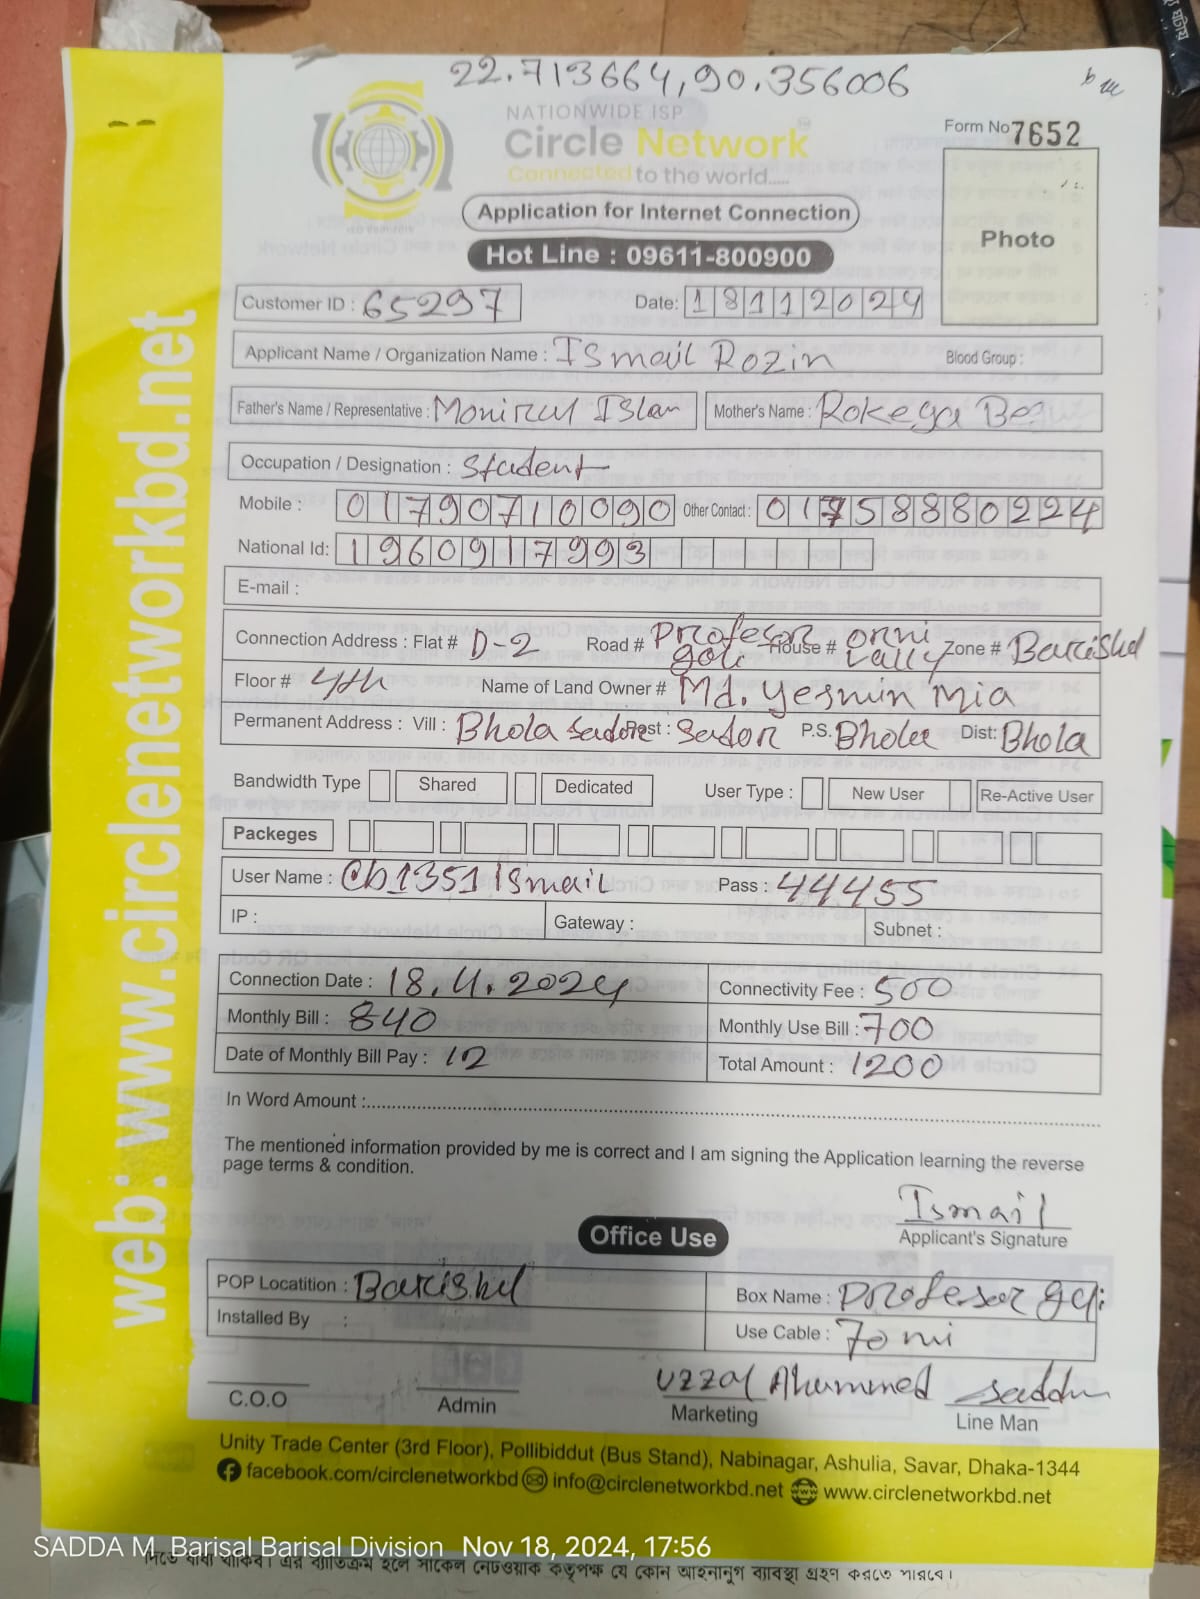 22.713664,90.356006
NATIONWIDE ISP
Circle Network
Connected to the world.....
Form No 7652
Application for Internet Connection
Photo
Hot Line : 09611-800900
Customer ID : 65297 Date: 18112024
Applicant Name / Organization Name : ISmail Rozin Blood Group :
Father's Name / Representative : Monirul ISlam Mother's Name : Rokeya Begum
Occupation / Designation : Student
Mobile : 01790710090 Other Contact : 01758880224
National Id: 1960917993
E-mail :
Connection Address : Flat # D-2 Road # Profesor goli House # orni vally Zone # Barishal
Floor # 4th Name of Land Owner # Md. yesmin Mia
Permanent Address : Vill : Bhola Sador Post : Sador P.S. Bhola Dist: Bhola
Bandwidth Type Shared Dedicated User Type : New User Re-Active User
Packeges
User Name : Cb1351 Ismail Pass : 44455
IP : Gateway : Subnet :
Connection Date : 18.11.2024 Connectivity Fee : 500
Monthly Bill : 840 Monthly Use Bill : 700
Date of Monthly Bill Pay : 12 Total Amount : 1200
In Word Amount :
The mentioned information provided by me is correct and I am signing the Application learning the reverse
page terms & condition.
Ismail
Applicant's Signature
Office Use
POP Locatition : Barishal Box Name : Profesor goli
Installed By : Use Cable : 70 mi
Uzzal Ahammed Saddam
C.O.O Admin Marketing Line Man
Unity Trade Center (3rd Floor), Pollibiddut (Bus Stand), Nabinagar, Ashulia, Savar, Dhaka-1344
facebook.com/circlenetworkbd info@circlenetworkbd.net www.circlenetworkbd.net
web: www.circlenetworkbd.net
SADDA M Barisal Barisal Division Nov 18, 2024, 17:56
দিতে বাধ্য থাকিব। এর ব্যতিক্রম হলে সার্কেল নেটওয়ার্ক কতৃপক্ষ যে কোন আইনানুগ ব্যবস্থা গ্রহণ করতে পারবে।